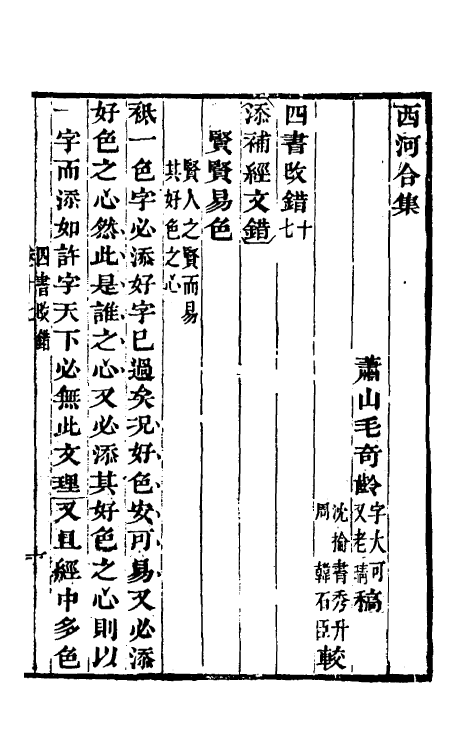 西河合集
蕭山毛奇齡字大可又老晴稿
沈掄書秀升
周 韓石臣較
四書改錯十七
添補經文錯
賢賢易色
賢人之賢而易
其好色之心
祗一色字必添好字已過矣况好色安可易又必添
好色之心然此是誰之心又必添其好色之心則以
一字而添如許字天下必無此文理又且經中多色
四書改錯
卷十七